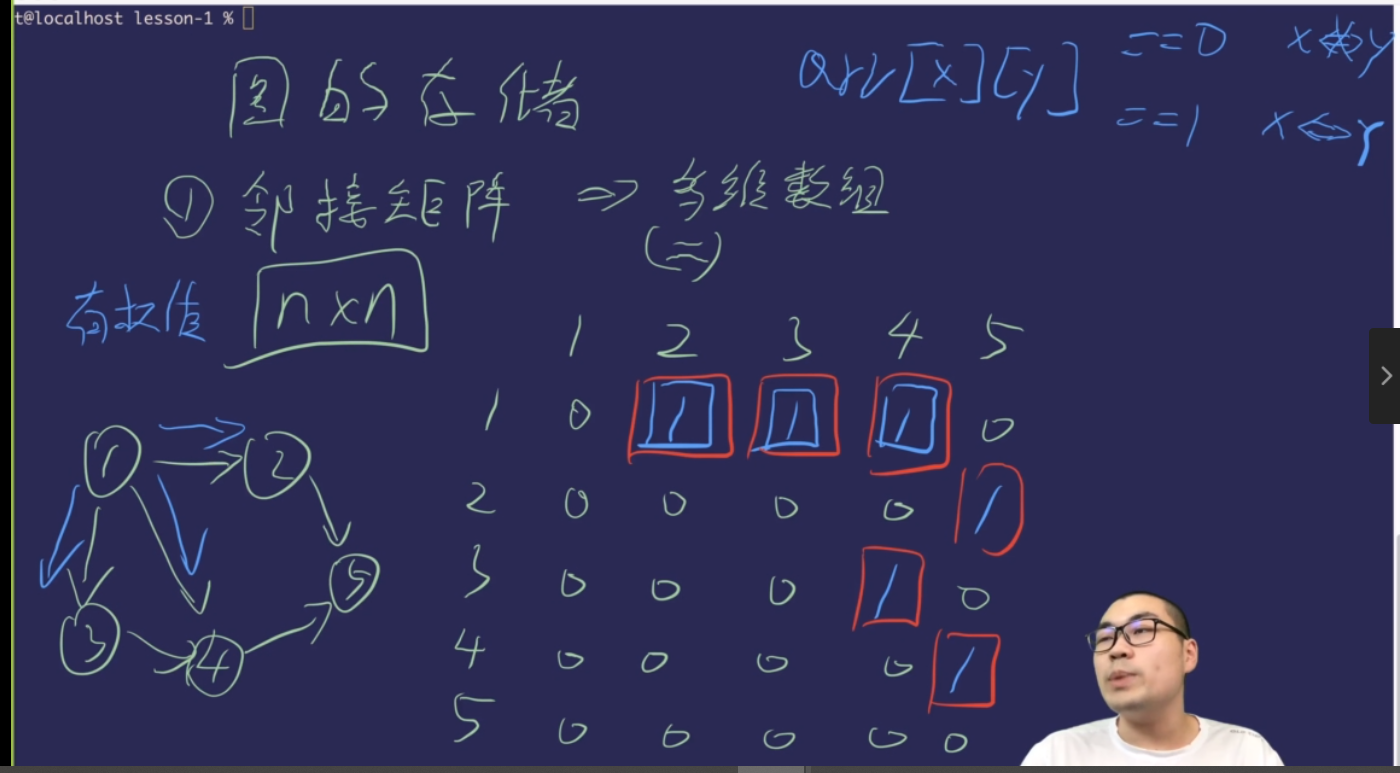 t@localhost lesson-1 %
图的存储
arr[x][y] ==0 x⇎y
==1 x⇔y
① 邻接矩阵 => 多维数组
(二)
有权值 n×n
1 2 3 4 5
1 0 1 1 1 0
2 0 0 0 0 1
3 0 0 0 1 0
4 0 0 0 0 1
5 0 0 0 0 0
1 2
5
3 4